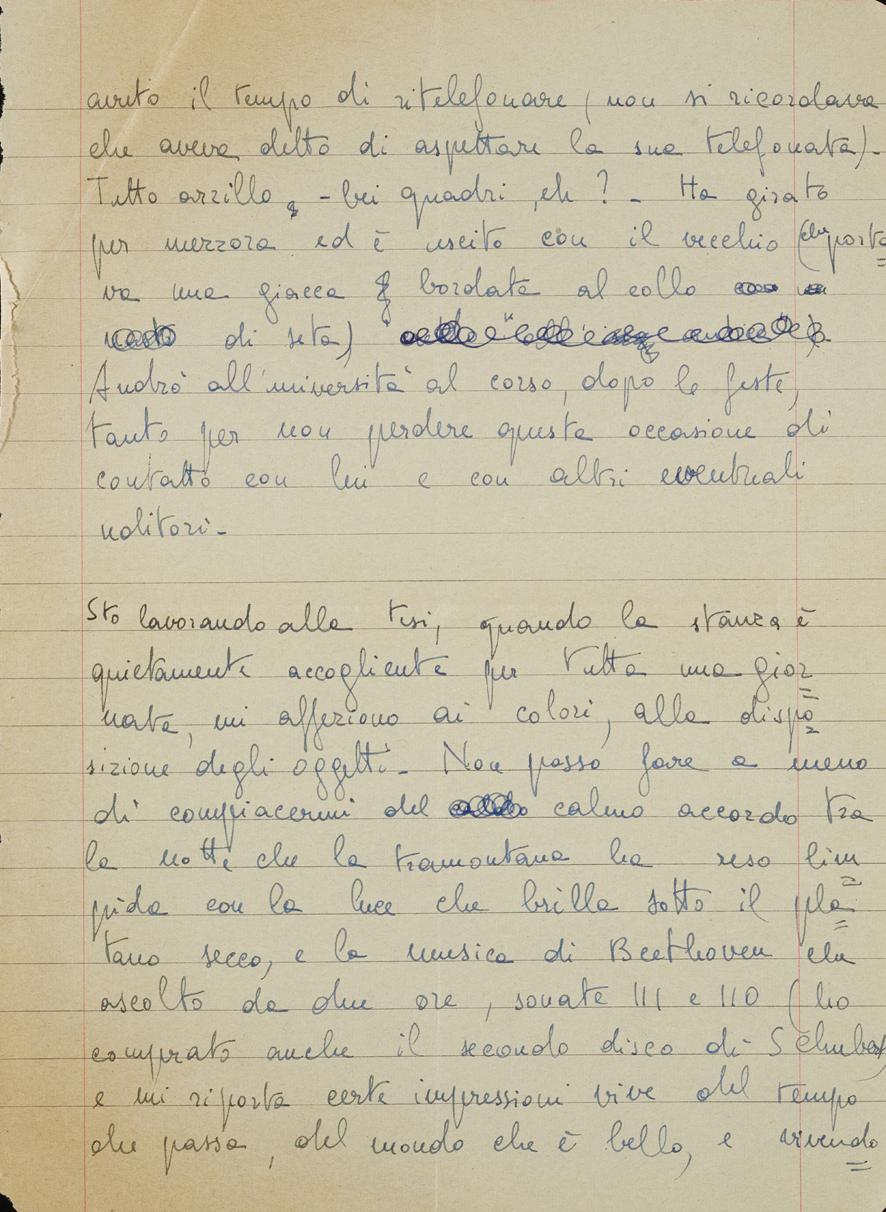 avuto il tempo di ritelefonare (non si ricordava
che aveva detto di aspettare la sua telefonata).
Tutto arzillo, - bei quadri, eh? - Ha girato
per mezzora ed è uscito con il vecchio (che porta
va una giacca bordata al collo
di seta)
Andrò all'università al corso, dopo le feste,
tanto per non perdere questa occasione di
contatto con lui e con altri eventuali
uditori.
Sto lavorando alla tesi, quando la stanza è
quietamente accogliente per tutta una gior=
nata, mi affeziono ai colori, alla dispo=
sizione degli oggetti. Non posso fare a meno
di compiacermi del calmo accordo tra
la notte che la tramontana ha reso lim=
pida con la luce che brilla sotto il pla=
tano secco, e la musica di Beethoven che
ascolto da due ore, sonate 111 e 110 (ho
comprato anche il secondo disco di Schubert)
e mi riporta certe impressioni vive del tempo
che passa, del mondo che è bello, e vivendo=